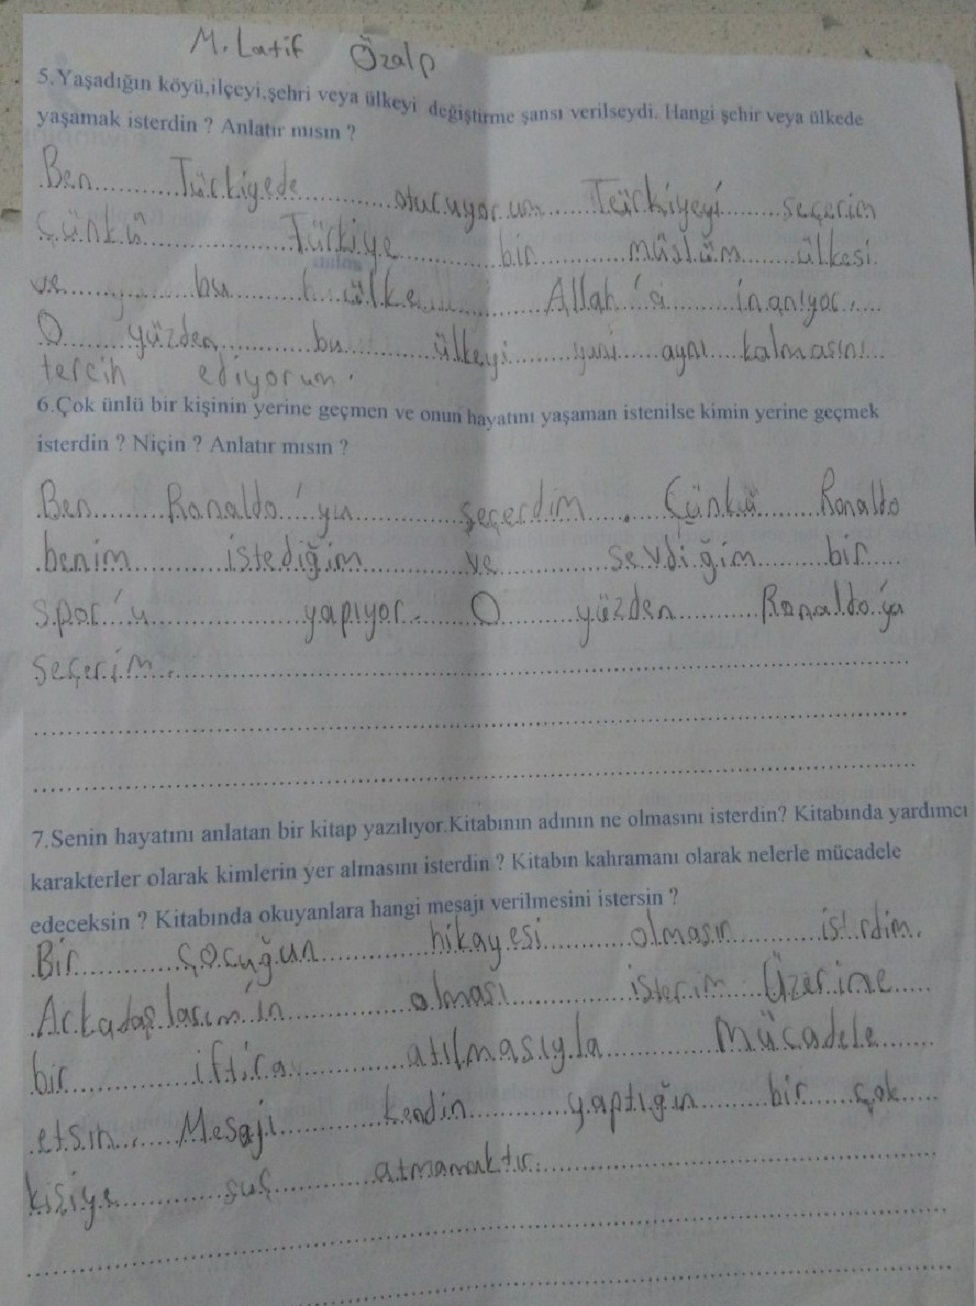 M. Latif Özalp
5.Yaşadığın köyü,ilçeyi,şehri veya ülkeyi değiştirme şansı verilseydi. Hangi şehir veya ülkede
yaşamak isterdin ? Anlatır mısın ?
Ben........Türkiyede..........oturuyorum......Türkiyeyi.......seçerim
Çünkü..............Türkiye..........bir..........müslüm......ülkesi.
ve...........bu..........ülke..........Allah'a......inanıyor.....
O......yüzden..........bu..........ülkeyi.......yani.....aynı...kalmasını...
tercih ediyorum.
6.Çok ünlü bir kişinin yerine geçmen ve onun hayatını yaşaman istenilse kimin yerine geçmek
isterdin ? Niçin ? Anlatır mısın ?
Ben.......Ronaldo'yu............seçerdim..... Çünkü......Ronaldo
benim.........istediğim..........ve..........sevdiğim.......bir.....
spor'u yapıyor.......O........yüzden........Ronaldo'ya
seçerim.....................................................
7.Senin hayatını anlatan bir kitap yazılıyor.Kitabının adının ne olmasını isterdin? Kitabında yardımcı
karakterler olarak kimlerin yer almasını isterdin ? Kitabın kahramanı olarak nelerle mücadele
edeceksin ? Kitabında okuyanlara hangi mesajı verilmesini istersin ?
Bir........çocuğun..........hikayesi........olmasın.......istrdim.
Arkadaşlarım'in...........olması..........isterim...Üzerine.....
bir..........iftira..........atılmasıyla..........Mücadele.......
etsin......Mesajı..........kendin.........yaptığın.......bir.....çok.....
kişiye..........suç.........atmamaktır...............................